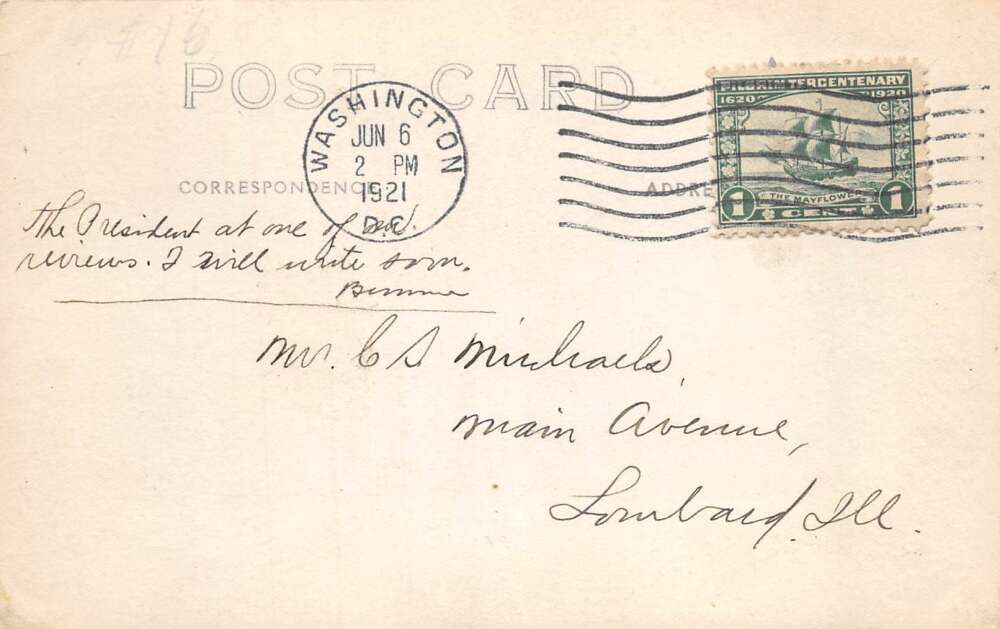 #16
POST CARD
WASHINGTON
JUN 6
2 PM
1921
D.C.
PILGRIM TERCENTENARY
1620 1920
THE MAYFLOWER
1 CENT 1
CORRESPONDENCE
ADDRE
The President at one of
reviews. I will write soon.
Mr. C S Michaels,
Main Avenue,
Lombard, Ill.